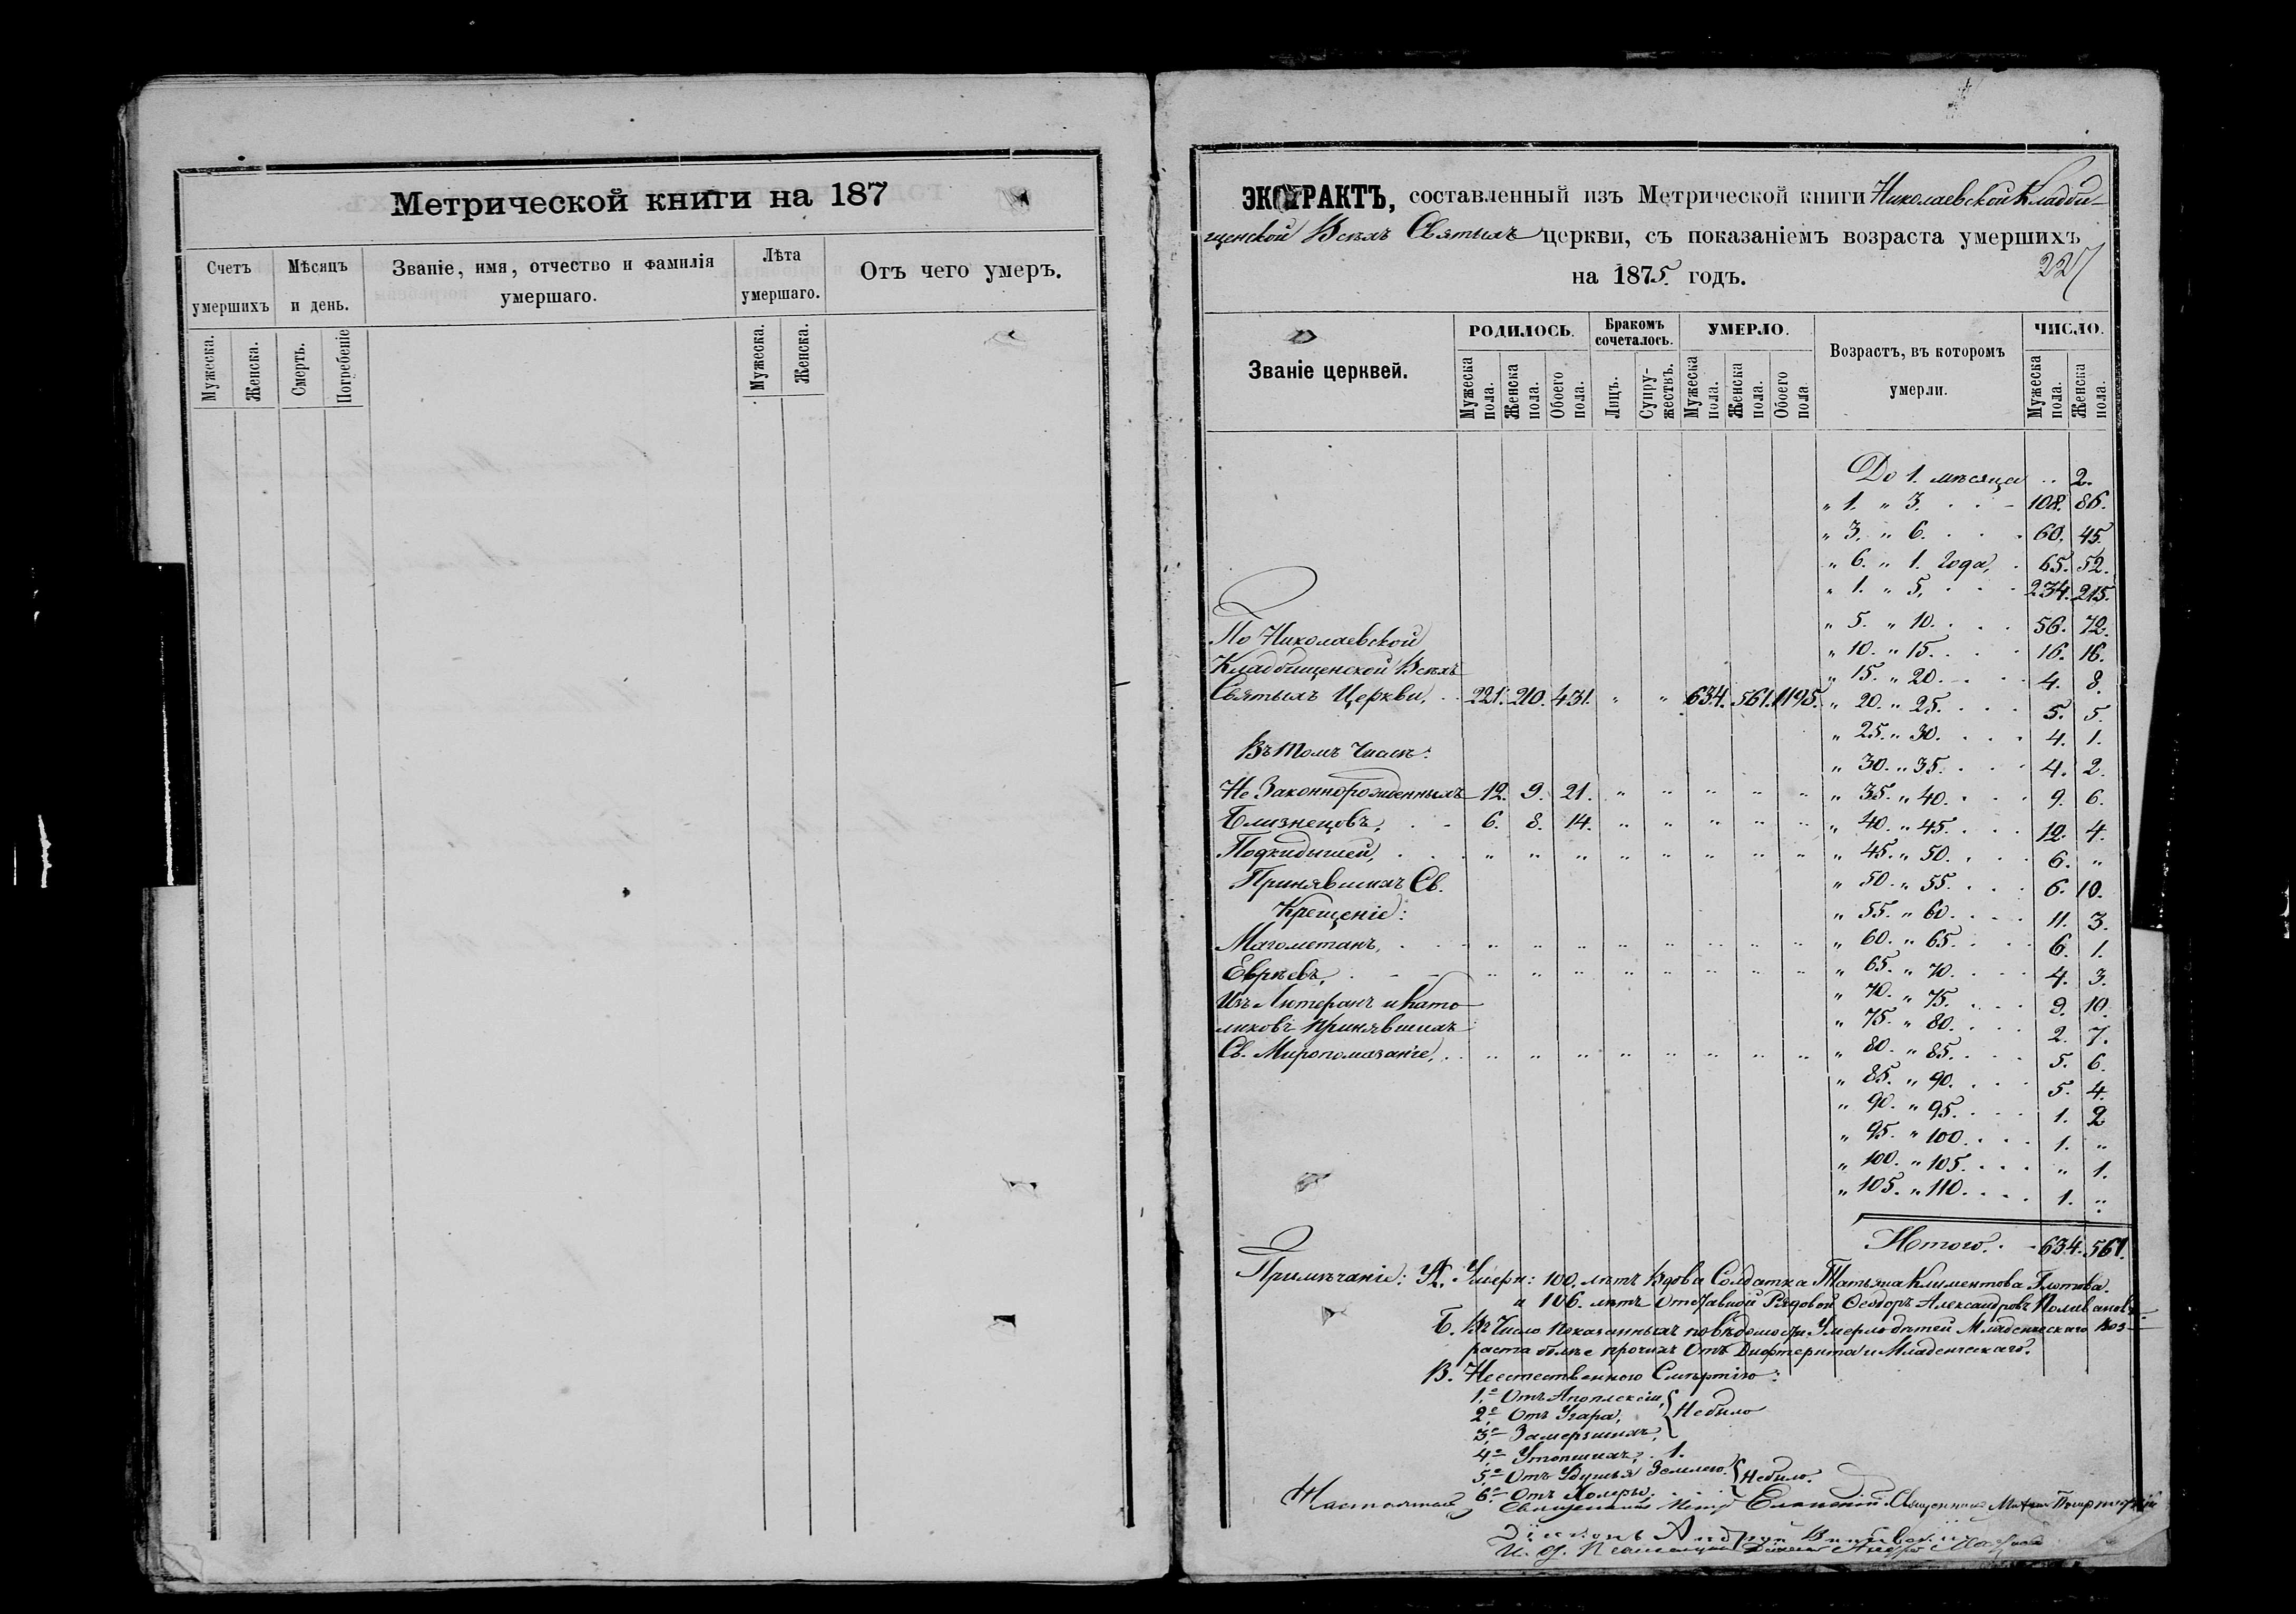 Метрической книги на 187
Счетъ умершихъ
Мѣсяцъ и день.
Званіе, имя, отчество и фамилія умершаго.
Лѣта умершаго.
Отъ чего умеръ.
Мужеска.
Женска.
Смерть.
Погребеніе
Мужеска.
Женска.
ЭКСТРАКТЪ, составленный изъ Метрической книги Николаевской Кладби-
щенской Всѣхъ Святыхъ церкви, съ показаніемъ возраста умершихъ
на 1875. годъ.
227
Званіе церквей.
РОДИЛОСЬ.
Бракомъ сочеталось.
УМЕРЛО.
Возрастъ, въ которомъ умерли.
ЧИСЛО.
Мужеска пола.
Женска пола.
Обоего пола.
Лицъ.
Супружествъ.
Мужеска пола.
Женска пола.
Обоего пола
Мужеска пола.
Женска пола.
До 1. мѣсяца .. 2.
" 1. " 3. 108. 86.
" 3. " 6. 60. 45.
" 6. " 1. года, 65. 52.
" 1. " 5, 234. 215.
" 5. " 10. 56. 72.
" 10. " 15. 16. 16.
" 15. " 20. 4. 8.
" 20. " 25. 5. 5.
" 25. " 30. 4. 1.
" 30. " 35. 4. 2.
" 35. " 40. 9. 6.
" 40. " 45. 12. 4.
" 45. " 50. 6. "
" 50. " 55. 6. 10.
" 55. " 60. 11. 3.
" 60. " 65. 6. 1.
" 65. " 70. 4. 3.
" 70. " 75. 9. 10.
" 75. " 80. 2. 7.
" 80. " 85. 5. 6.
" 85. " 90. 5. 4.
" 90. " 95. 1. 2
" 95. " 100. 1. "
" 100. " 105. " 1.
" 105. " 110. 1. "
Итого. 634. 561.
По Николаевской
Кладбищенской Всѣхъ
Святыхъ Церкви, 221. 210. 431. " " 634. 561. 1195.
Въ томъ числѣ:
Не Законнорожденныхъ 12. 9. 21. " " " " "
Близнецовъ, 6. 8. 14. " " " " "
Подкидышей, " " " " " " " "
Принявшихъ Св.
Крещеніе:
Магометанъ, " " " " " " " "
Евреевъ, " " " " " " " "
Изъ Лютеранъ и Като
ликовъ принявшихъ
Св. Миропомазаніе, " " " " " " " "
Примѣчаніе: А. Умерш: 100. лѣтъ Вдова Солдатка Татьяна Климентова Глотова.
и 106. лѣтъ Отставной Рядовой Ѳеодоръ Александровъ Поливановъ
Б. Въ число показанныхъ по вѣдомости Умерло дѣтей Младенческаго воз-
раста болѣе прочихъ Отъ Дифтерита и Младенческаго.
В. Неестественною Смертію:
1е. Отъ Апоплексіи,
2е. Отъ Угара, Небыло
3е. Замерзшихъ,
4е. Утопшихъ, 1.
5е. Отъ Удушья Землею. Небыло.
6е. Отъ Холеры.
Священникъ Петръ Священникъ
Діаконъ Андрей
И. д. Псаломщика